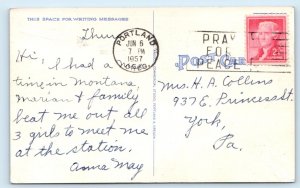 THIS SPACE FOR WRITING MESSAGES
Thurs.
Hi, I had a
time in Montana,
Marian & family
beat me out, all
3 girls to meet me
at the station.
Anna May
PORTLAND
JUN 6
7 PM
1957
OREG.
PRAY
FOR
PEACE
Post Card
2¢
Mrs. H. A. Collins
937 E. Princess St.
York,
Pa.